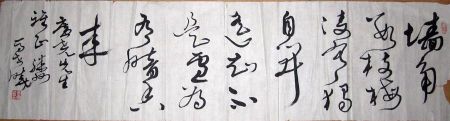 墙角
数枝梅
凌寒独
自开
遥知不
是雪为
有暗香
来